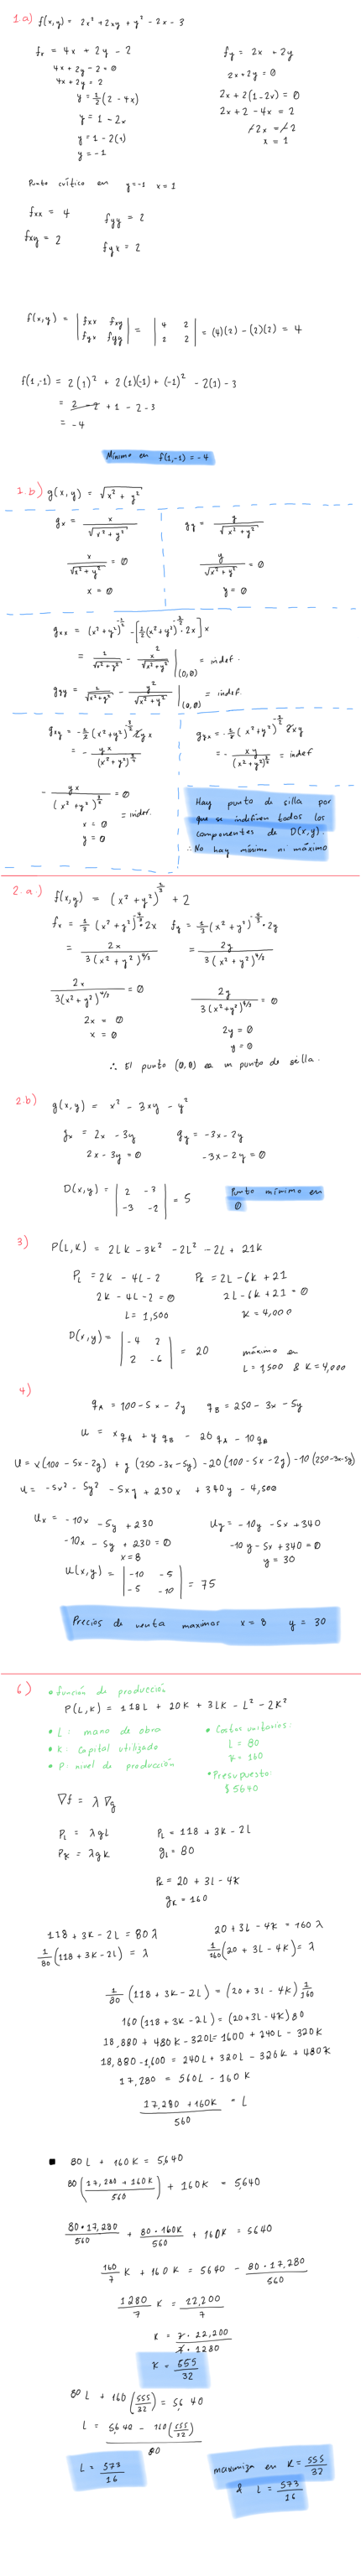 1.a) f(x,y) = 2x² + 2xy + y² - 2x - 3
fx = 4x + 2y - 2
4x + 2y - 2 = 0
4x + 2y = 2
y = 1/2 (2 - 4x)
y = 1 - 2x
y = 1 - 2(1)
y = -1
fy = 2x + 2y
2x + 2y = 0
2x + 2(1-2x) = 0
2x + 2 - 4x = 2
-2x = -2
x = 1
Punto crítico en y=-1 x=1
fxx = 4
fyy = 2
fxy = 2
fyx = 2
f(x,y) = |fxx fxy; fyx fyy| = |4 2; 2 2| = (4)(2) - (2)(2) = 4
f(1,-1) = 2(1)² + 2(1)(-1) + (-1)² - 2(1) - 3
= 2 - 2 + 1 - 2 - 3
= -4
Mínimo en f(1,-1) = -4
1.b) g(x,y) = √(x² + y²)
gx = x/√(x² + y²)
x/√(x² + y²) = 0
x = 0
gy = y/√(x² + y²)
y/√(x² + y²) = 0
y = 0
= indef.
= indef.
y = 0
Hay punto de silla por
que se indefinen todos los
componentes de D(x,y).
∴ No hay máximo ni máximo
2.a) f(x,y) = (x² + y²)^(1/3) + 2
2x = 0
x = 0
2y = 0
y = 0
∴ El punto (0,0) es un punto de silla.
2.b) g(x,y) = x² - 3xy - y²
gx = 2x - 3y
2x - 3y = 0
gy = -3x - 2y
-3x - 2y = 0
D(x,y) = |2 -3; -3 -2| = 5
Punto mínimo en
0
3) P(L,K) = 2LK - 3K² - 2L² - 2L + 21K
PL = 2K - 4L - 2
2K - 4L - 2 = 0
L = 1,500
PK = 2L - 6K + 21
2L - 6K + 21 = 0
K = 4,000
D(x,y) = |-4 2; 2 -6| = 20
máximo en
L = 1,500 & K = 4,000
4)
qA = 100 - 5x - 2y qB = 250 - 3x - 5y
u = x qA + y qB - 20 qA - 10 qB
u = x(100 - 5x - 2y) + y(250 - 3x - 5y) - 20(100 - 5x - 2y) - 10(250 - 3x - 5y)
u = -5x² - 5y² - 5xy + 230x + 340y - 4,500
Ux = -10x - 5y + 230
-10x - 5y + 230 = 0
x = 8
Uy = -10y - 5x + 340
-10y - 5x + 340 = 0
y = 30
U(x,y) = |-10 -5; -5 -10| = 75
Precios de venta maximos x = 8 y = 30
6) • función de producción
P(L,K) = 118L + 20K + 3LK - L² - 2K²
• L: mano de obra
• K: capital utilizado
• P: nivel de producción
• Costos unitarios:
L = 80
K = 160
• Presupuesto:
$5640
∇f = λ∇g
PL = λgL
PK = λgK
PL = 118 + 3K - 2L
gL = 80
PK = 20 + 3L - 4K
gK = 160
118 + 3K - 2L = 80λ
1/80 (118 + 3K - 2L) = λ
20 + 3L - 4K = 160λ
1/160 (20 + 3L - 4K) = λ
1/80 (118 + 3K - 2L) = (20 + 3L - 4K) 1/160
160(118 + 3K - 2L) = (20 + 3L - 4K)80
18,880 + 480K - 320L = 1600 + 240L - 320K
18,880 - 1,600 = 240L + 320L - 320K + 480K
17,280 = 560L - 160K
(17,280 + 160K)/560 = L
■ 80L + 160K = 5,640
80((17,280 + 160K)/560) + 160K = 5,640
80·17,280/560 + 80·160K/560 + 160K = 5640
160/7 K + 160K = 5640 - 80·17,280/560
1280/7 K = 22,200/7
K = 7·22,200/7·1280
K = 555/32
80L + 160(555/32) = 5640
L = (5640 - 160(555/32))/80
L = 573/16
maximiza en K = 555/32
& L = 573/16